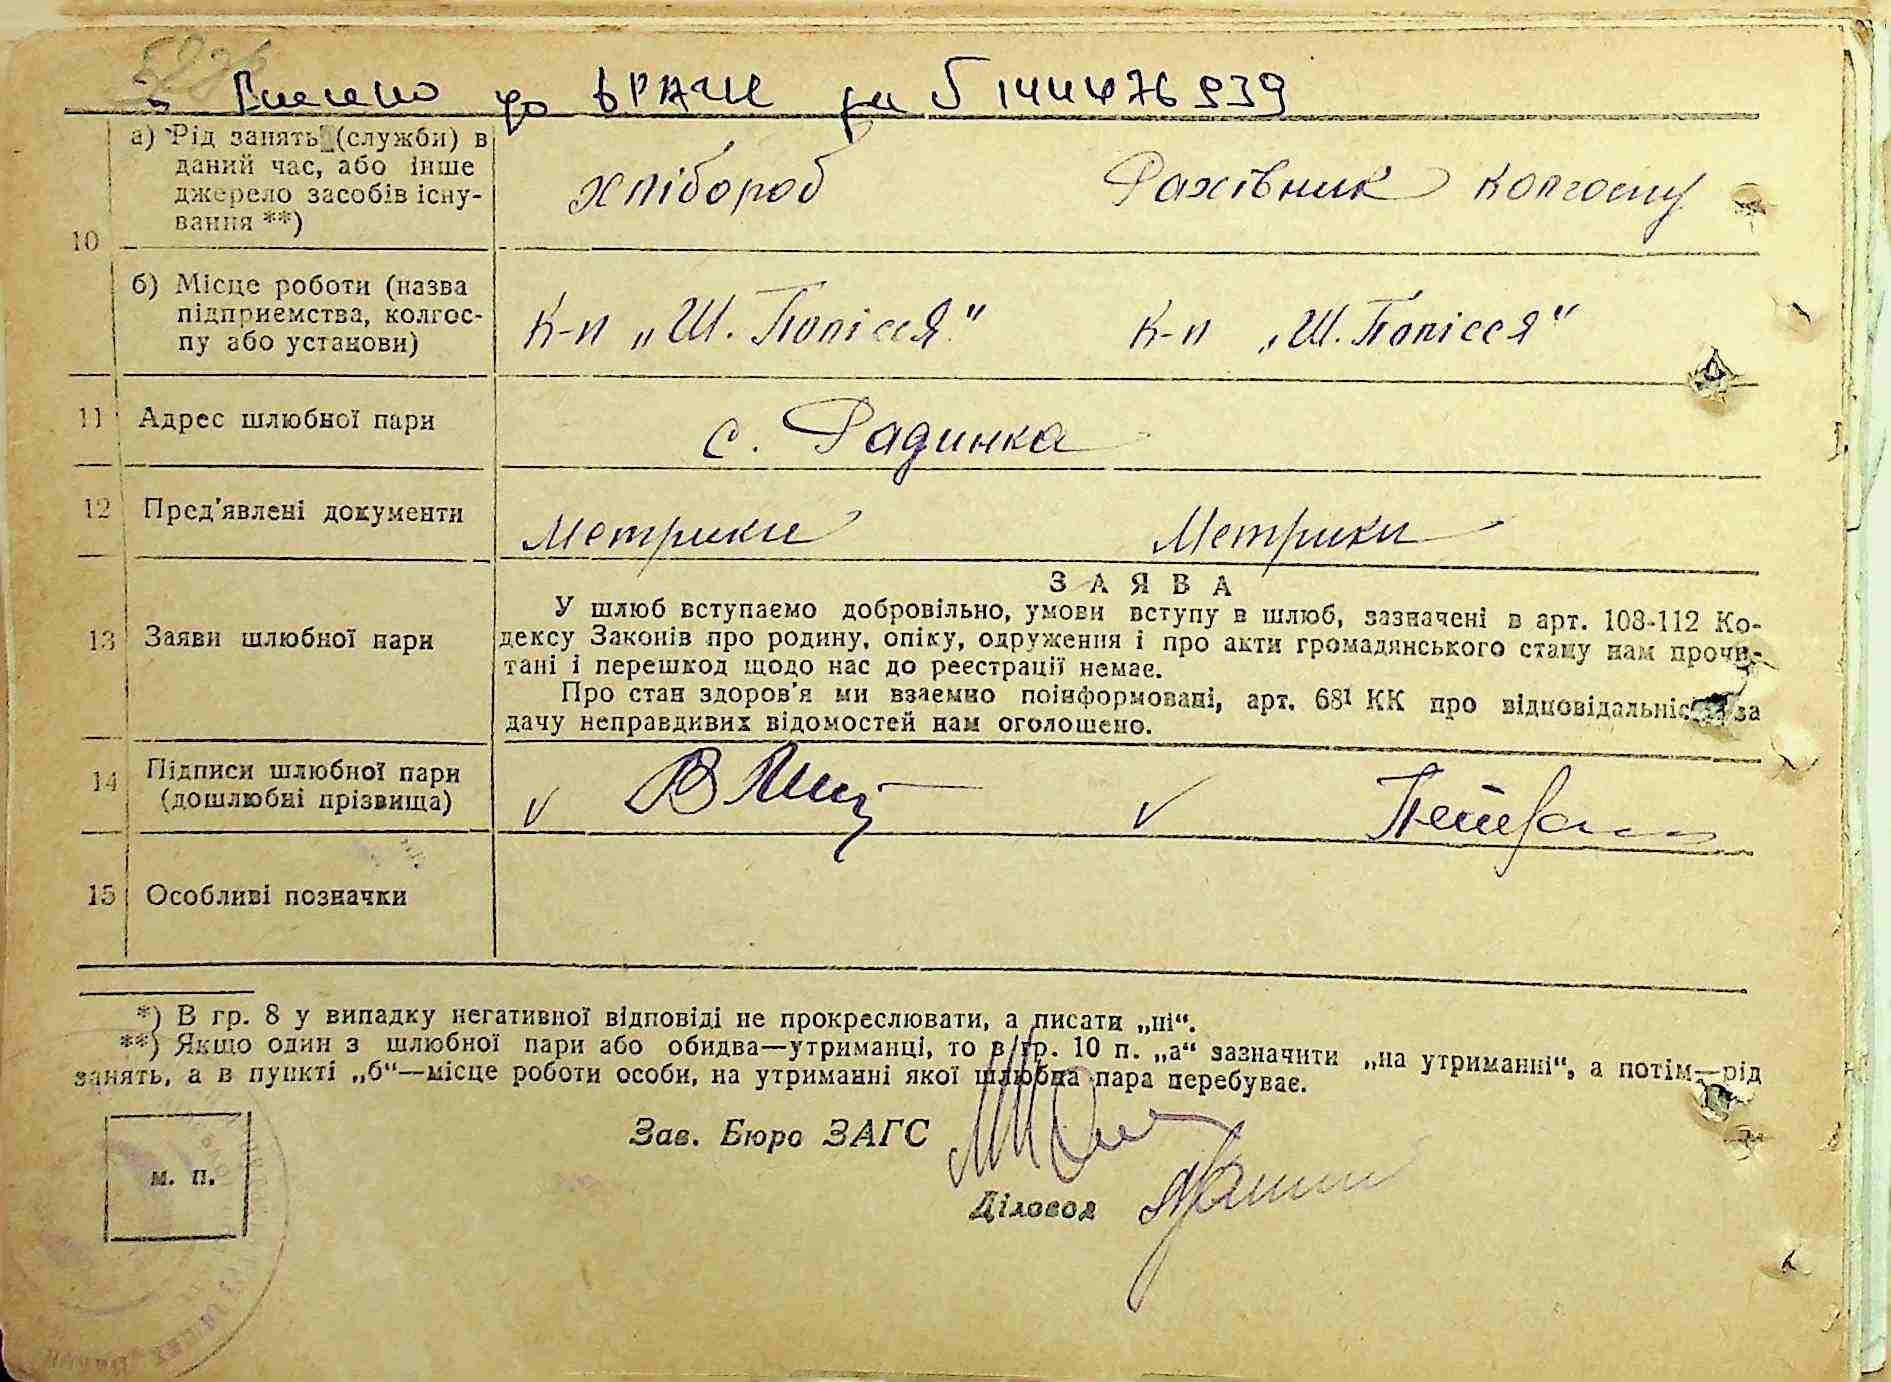 Внесено до ДРАЦС за
а) Рід занять (служби) в
даний час, або інше
джерело засобів існу-
вання **)
хлібороб Рахівник колгоспу
10
б) Місце роботи (назва
підприємства, колгос-
пу або установи)
К-п „Ш. Полісся" К-п „Ш. Полісся"
11 Адрес шлюбної пари с. Радинка
12 Пред'явлені документи Метрики Метрики
ЗАЯВА
13 Заяви шлюбної пари
У шлюб вступаємо добровільно, умови вступу в шлюб, зазначені в арт. 108-112 Ко-
дексу Законів про родину, опіку, одруження і про акти громадянського стану нам прочи-
тані і перешкод щодо нас до реєстрації немає.
Про стан здоров'я ми взаємно поінформовані, арт. 68¹ КК про відповідальність за
дачу неправдивих відомостей нам оголошено.
14 Підписи шлюбної пари
(дошлюбні прізвища)
15 Особливі позначки
*) В гр. 8 у випадку негативної відповіді не прокреслювати, а писати „ні“.
**) Якщо один з шлюбної пари або обидва—утриманці, то в гр. 10 п. „а“ зазначити „на утриманні“, а потім—рід
занять, а в пункті „б“—місце роботи особи, на утриманні якої шлюбна пара перебуває.
Зав. Бюро ЗАГС
м. п.
Діловод